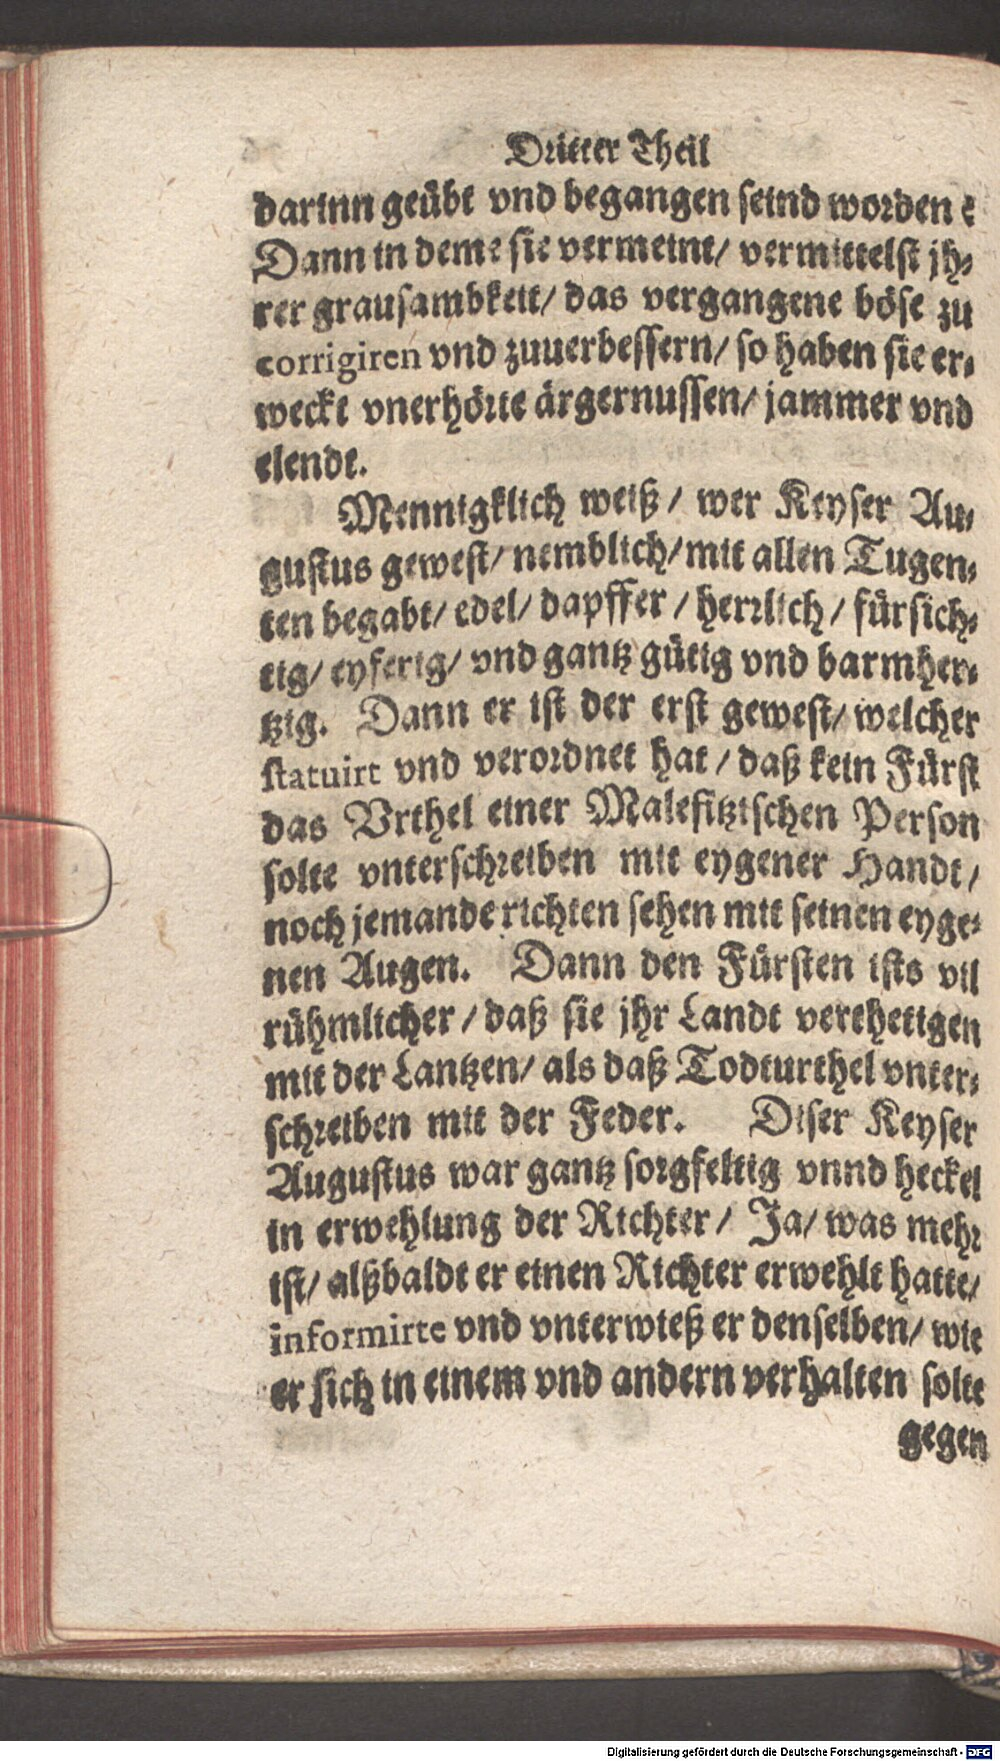 Dritter Theil
darinn geübt vnd begangen seind worden?
Dann in deme sie vermeint/ vermittelst jh-
rer grausambkeit/ das vergangene böse zu
corrigiren vnd zuuerbessern/ so haben sie er-
weckt vnerhörte ärgernussen/ jammer vnd
elendt.
Mennigklich weiß/ wer Keyser Au-
gustus gewest/ nemblich/ mit allen Tugen-
ten begabt/ edel/ dapffer/ herrlich/ fürsich-
tig/ eyferig/ vnd gantz gütig vnd barmher-
tzig. Dann er ist der erst gewest/ welcher
statuirt vnd verordnet hat/ daß kein Fürst
das Vrthel einer Malefitzischen Person
solte vnterschreiben mit eygener Handt/
noch jemande richten sehen mit seinen eyge-
nen Augen. Dann den Fürsten ists vil
rühmlicher/ daß sie jhr Landt vertheitigen
mit der Lantzen/ als daß Todturthel vnter-
schreiben mit der Feder. Diser Keyser
Augustus war gantz sorgfeltig vnnd heckel
in erwehlung der Richter/ Ja/ was mehr
ist/ alßbaldt er einen Richter erwehlt hatte/
informirte vnd vnterwieß er denselben/ wie
er sich in einem vnd andern verhalten solte
gegen
Digitalisierung gefördert durch die Deutsche Forschungsgemeinschaft - DFG